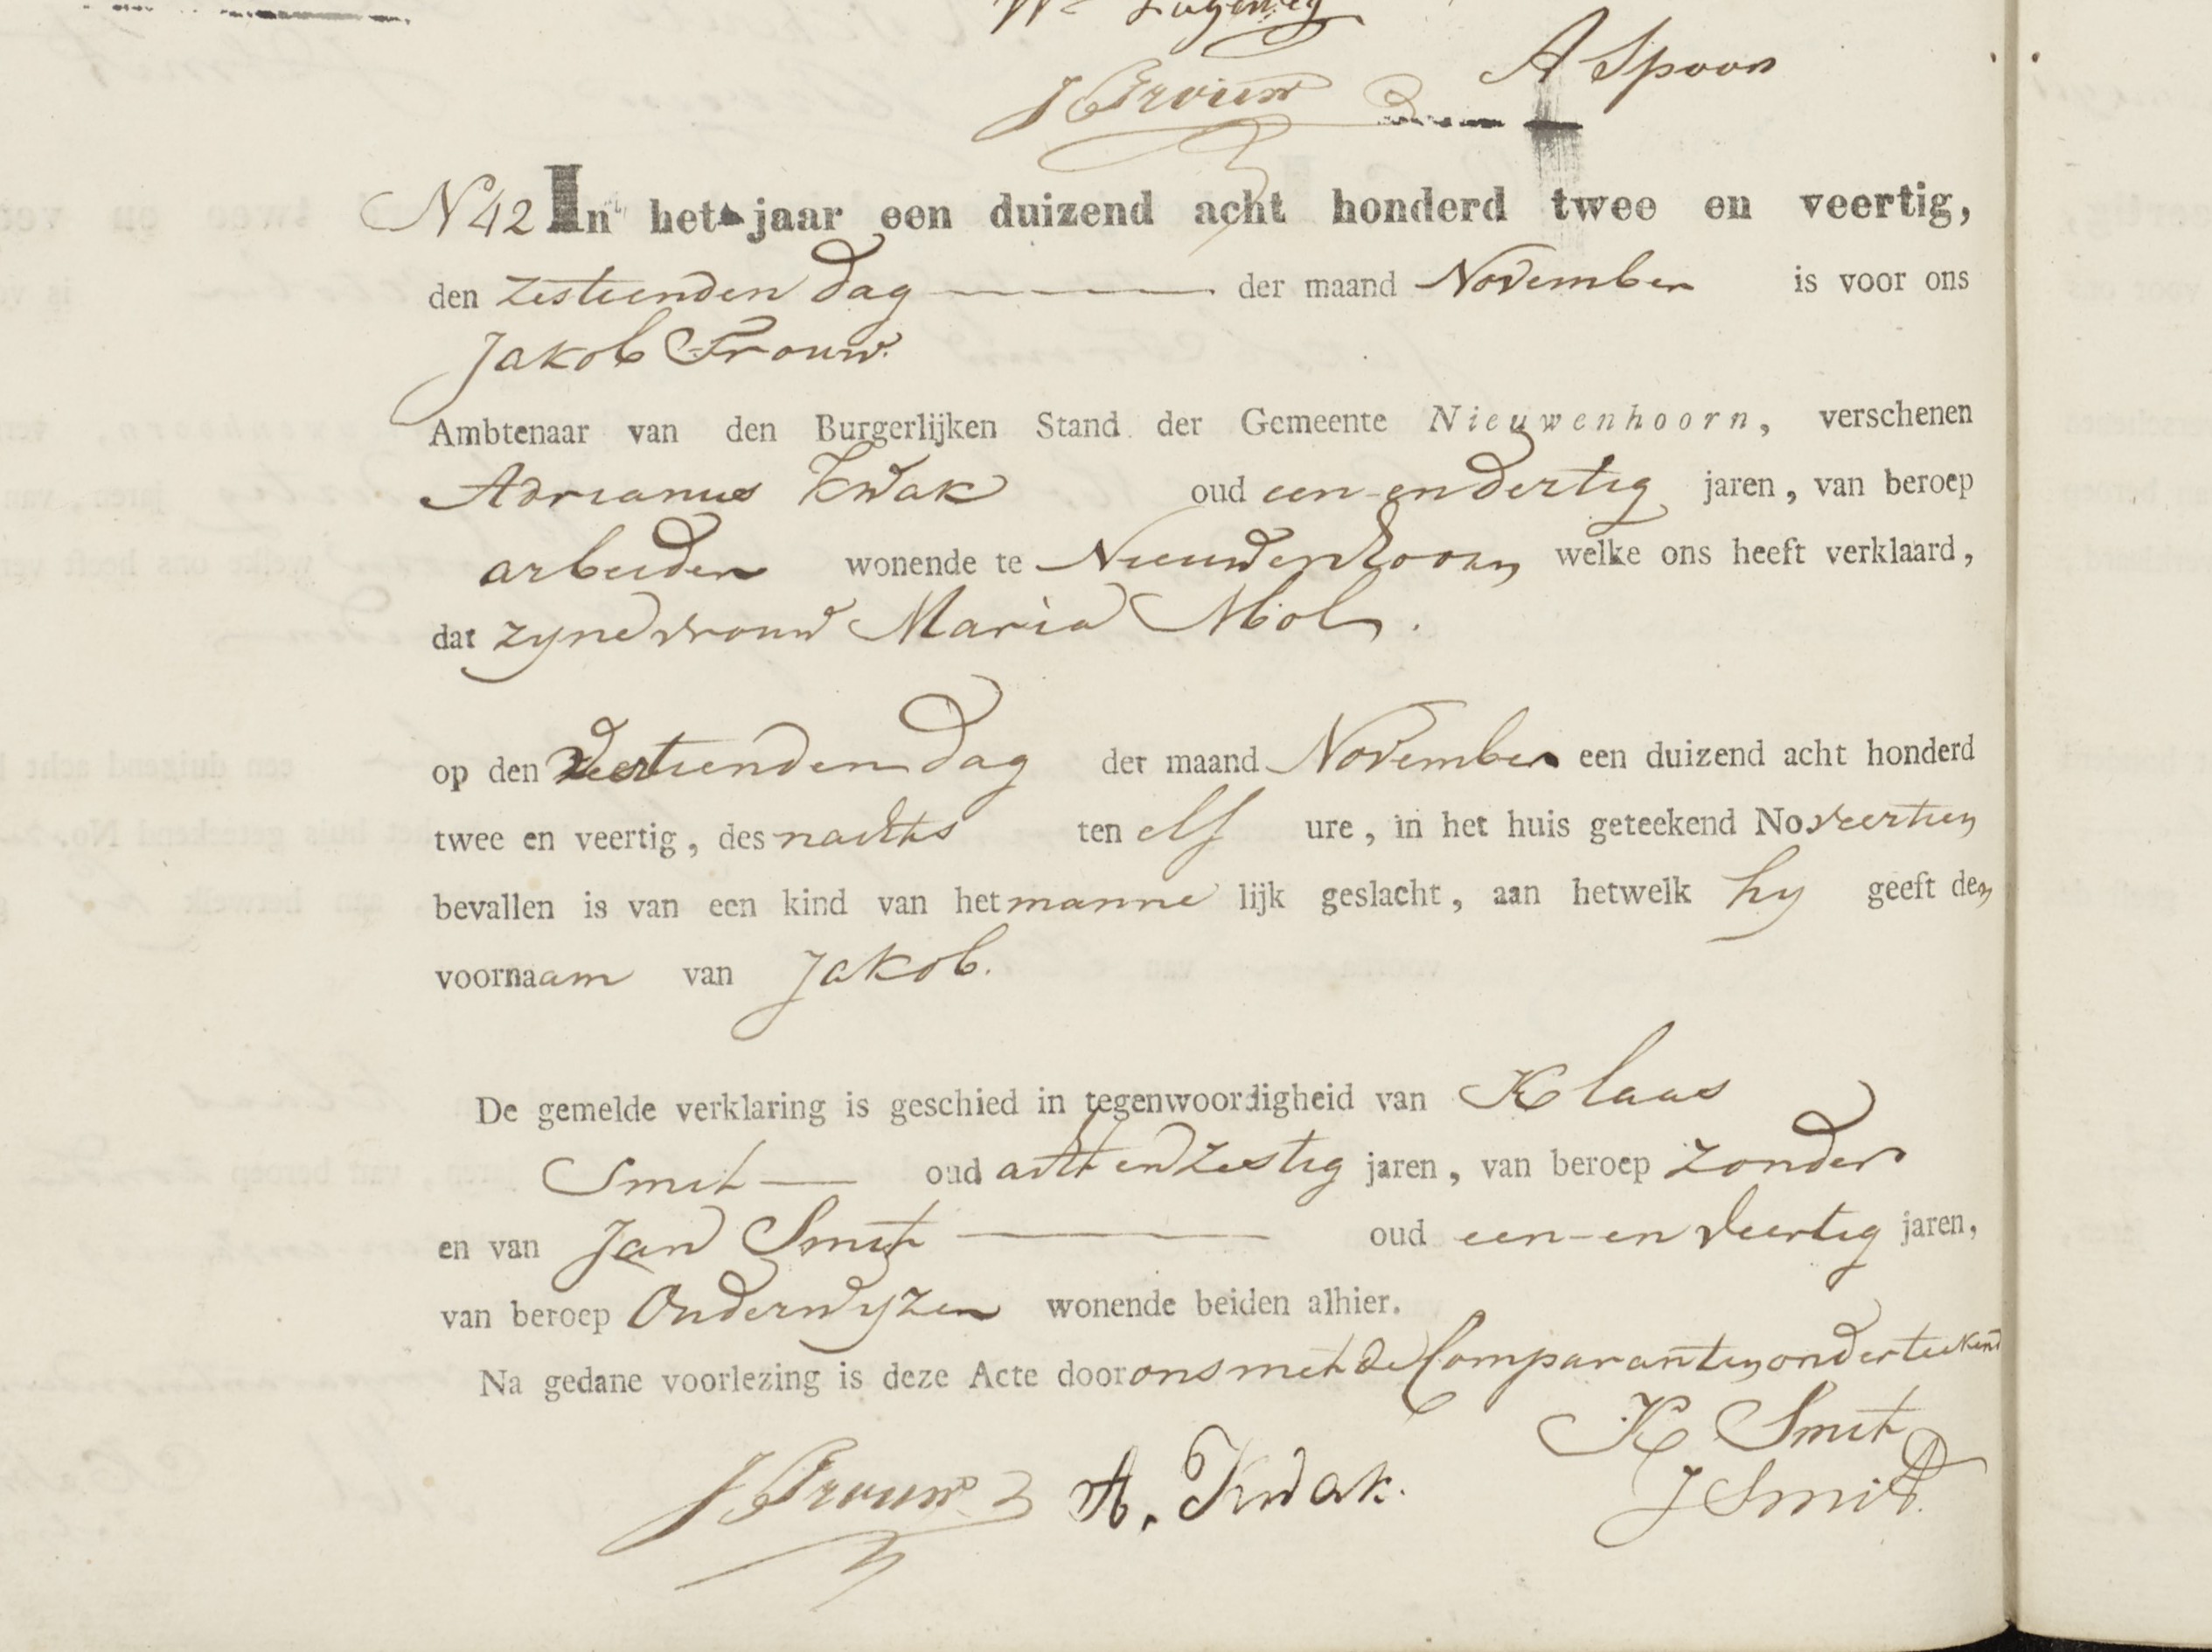 A Spoon
N 42 In het jaar een duizend acht honderd twee en veertig,
den zestienden dag der maand November is voor ons
Jakob Trouw.
Ambtenaar van den Burgerlijken Stand der Gemeente Nieuwenhoorn, verschenen
Adrianus Kwak oud een en dertig jaren, van beroep
arbeider wonende te Nieuwenhoorn welke ons heeft verklaard,
dat zyne vrouw Maria Mol.
op den veertienden dag der maand November een duizend acht honderd
twee en veertig, des nachts ten elf ure, in het huis geteekend No. veertien
bevallen is van een kind van het manne lijk geslacht, aan hetwelk hy geeft den
voornaam van Jakob.
De gemelde verklaring is geschied in tegenwoordigheid van Klaas
Smit oud acht en zestig jaren, van beroep zonder
en van Jan Smit oud een en veertig jaren,
van beroep Onderwyzer wonende beiden alhier.
Na gedane voorlezing is deze Acte door ons met de Comparanten onderteekend
K Smit
J Trouw A. Kwak. J Smit